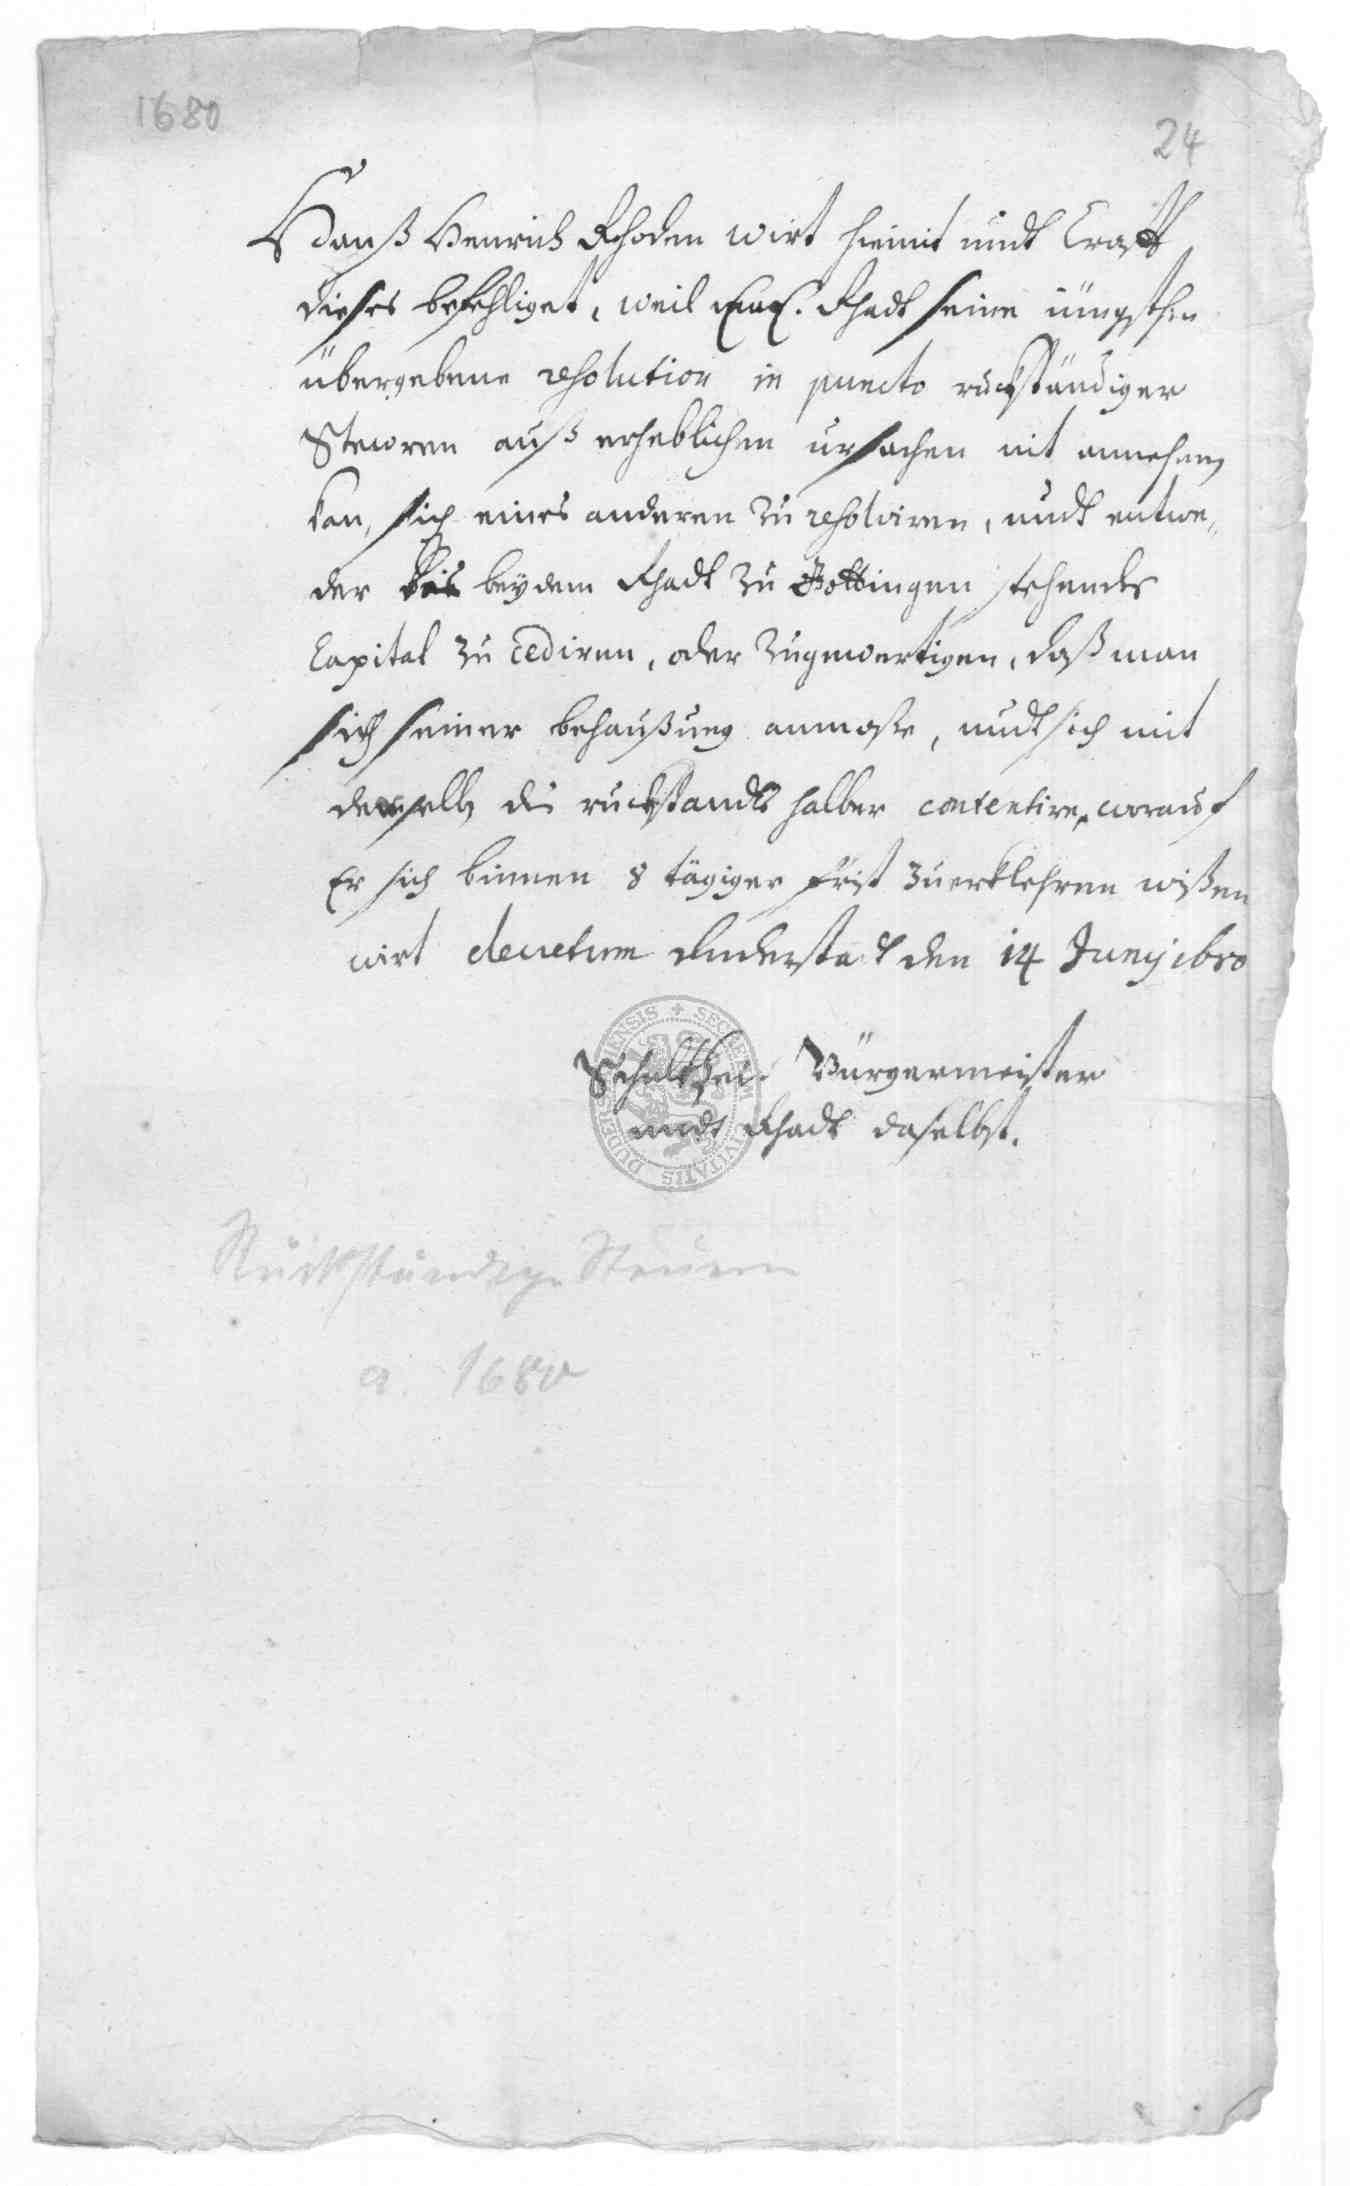 1680
24
Hanß Henrich Rhoden wirt hiemit undt Crafft
dieses befehliget, weil Rhadt seine jüngsthin
übergebene resolution in puncto rückständiger
Steuren auß erheblichen ursachen nit annehmen
kan, sich eines anderen zu resolviren, undt entwe„
der bey dem Rhadt zu Göttingen stehendes
Capital zu cediren, oder zugewertigen, daß man
sich seiner behaußung anmaße, undt sich mit
derselben rückstandts halber contentire, worauf
Er sich binnen 8 tägiger frist zuerklehren wißen
wirt decretum Duderstadt den 14 Junij 1680
Schulthei. Bürgermeister
undt Rhadt daselbst.
SECRETUM CIVITATIS DUDERSTADENSIS
Rückständige Steuern
a. 1680